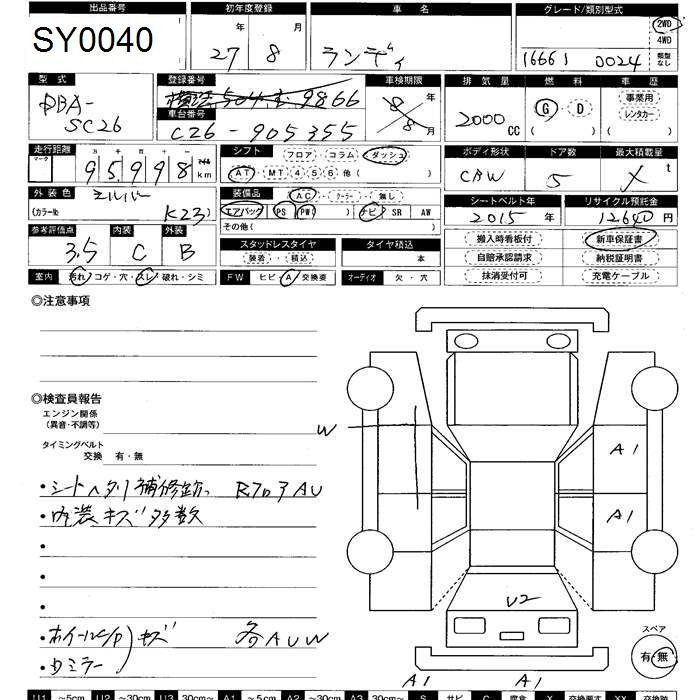 出品番号 初年度登録 車名 グレード/類別型式
SY0040 27年 8月 ランディ 16661 0024 2WD 4WD 類型なし
型式 登録番号 車検期限 排気量 燃料 車歴
DBA-SC26 9866 8年8月 2000cc G・D ( )( ) 事業用 レンタカー ( )
車台番号
C26-905355
走行距離 シフト フロア・コラム・ダッシュ ボディ形状 ドア数 最大積載量
マーク 十 万 千 百 十 一
95998 マイル km AT・MT 4 5 6 他( ) CAW 5 X t
外装色 シルバー 装備品 AC・クーラー・無し シートベルト年 リサイクル預託金
(カラーNo. K23) エアバッグ PS PW( ) ナビ SR AW 2015年 12640円
その他( )
参考評価点 内装 外装 スタッドレスタイヤ タイヤ積込 搬入時看板付 新車保証書
3.5 C B 装着・積込 本 自賠承認請求 納税証明書
室内 汚れ・コゲ・穴・スレ・破れ・シミ FW ヒビ・A・交換要 オーディオ 欠・穴 抹消受付可 充電ケーブル
◎注意事項
◎検査員報告
エンジン関係
(異音・不調等)
タイミングベルト
交換 有・無
・シートヘタリ 補修跡、RフロアAU
・内装キズ多数
・ホイールC/P キズ 各AUW
・Wミラー
W
A1
A1
U2
A1 A1
スペア
有・無
U1 ~5cm U2 ~30cm U3 30cm~ A1 ~5cm A2 ~30cm A3 30cm~ S サビ C 腐食 X 交換要す XX 交換跡